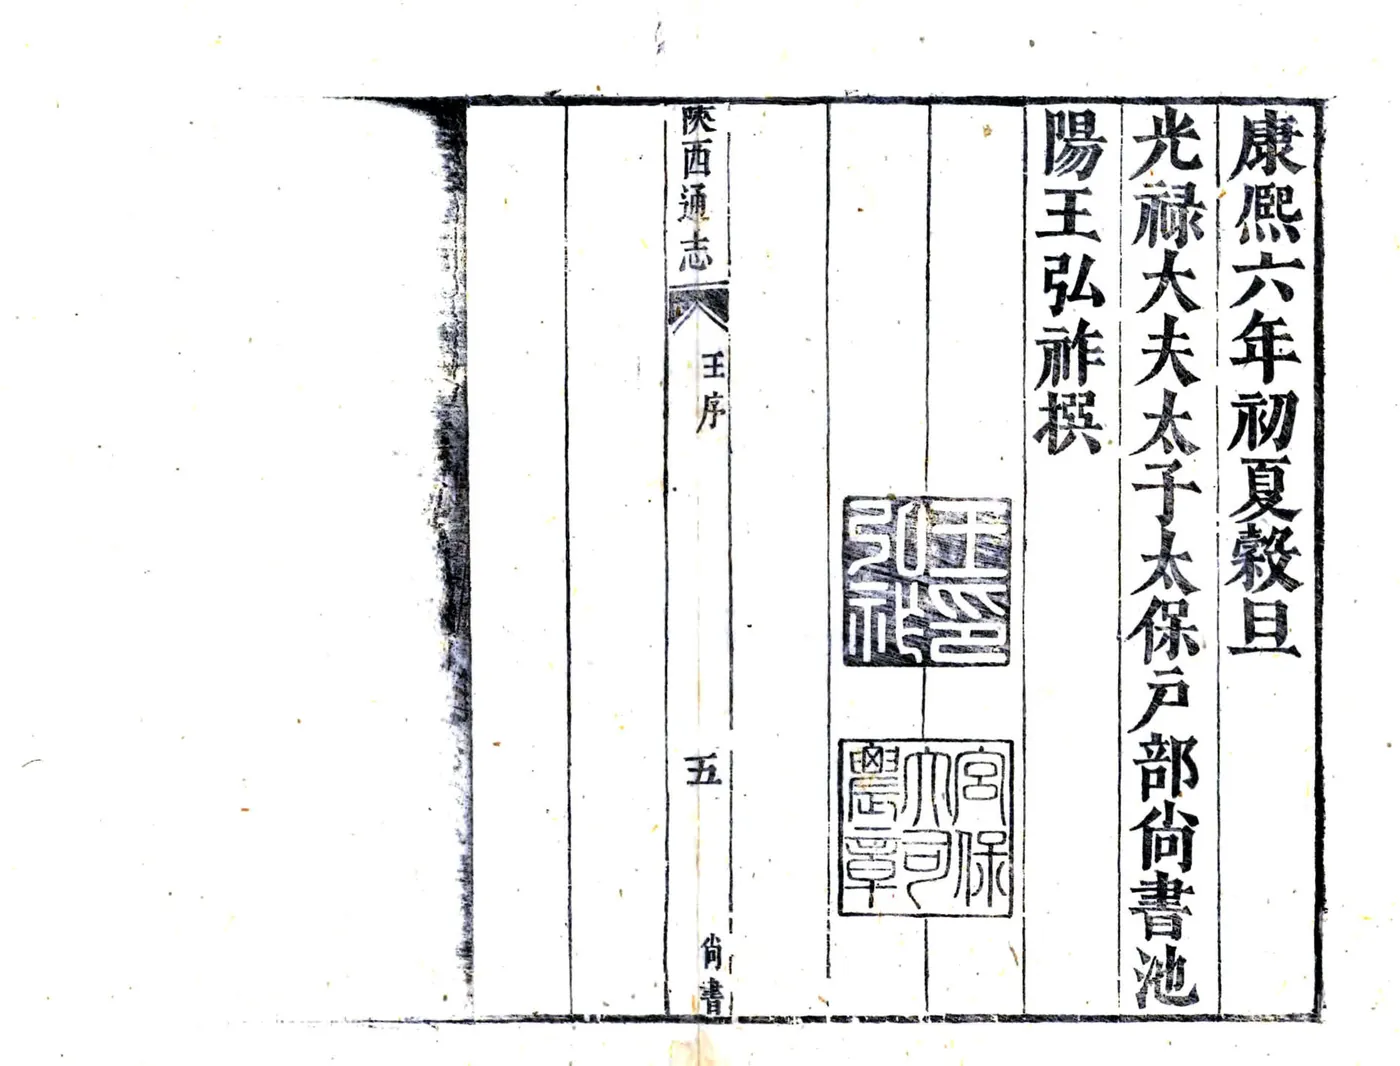 康熙六年初夏穀旦
光禄大夫太子太保戶部尚書池
陽王弘祚撰
王印弘祚
宮保大司農章
陝西通志
王序
五
尚書